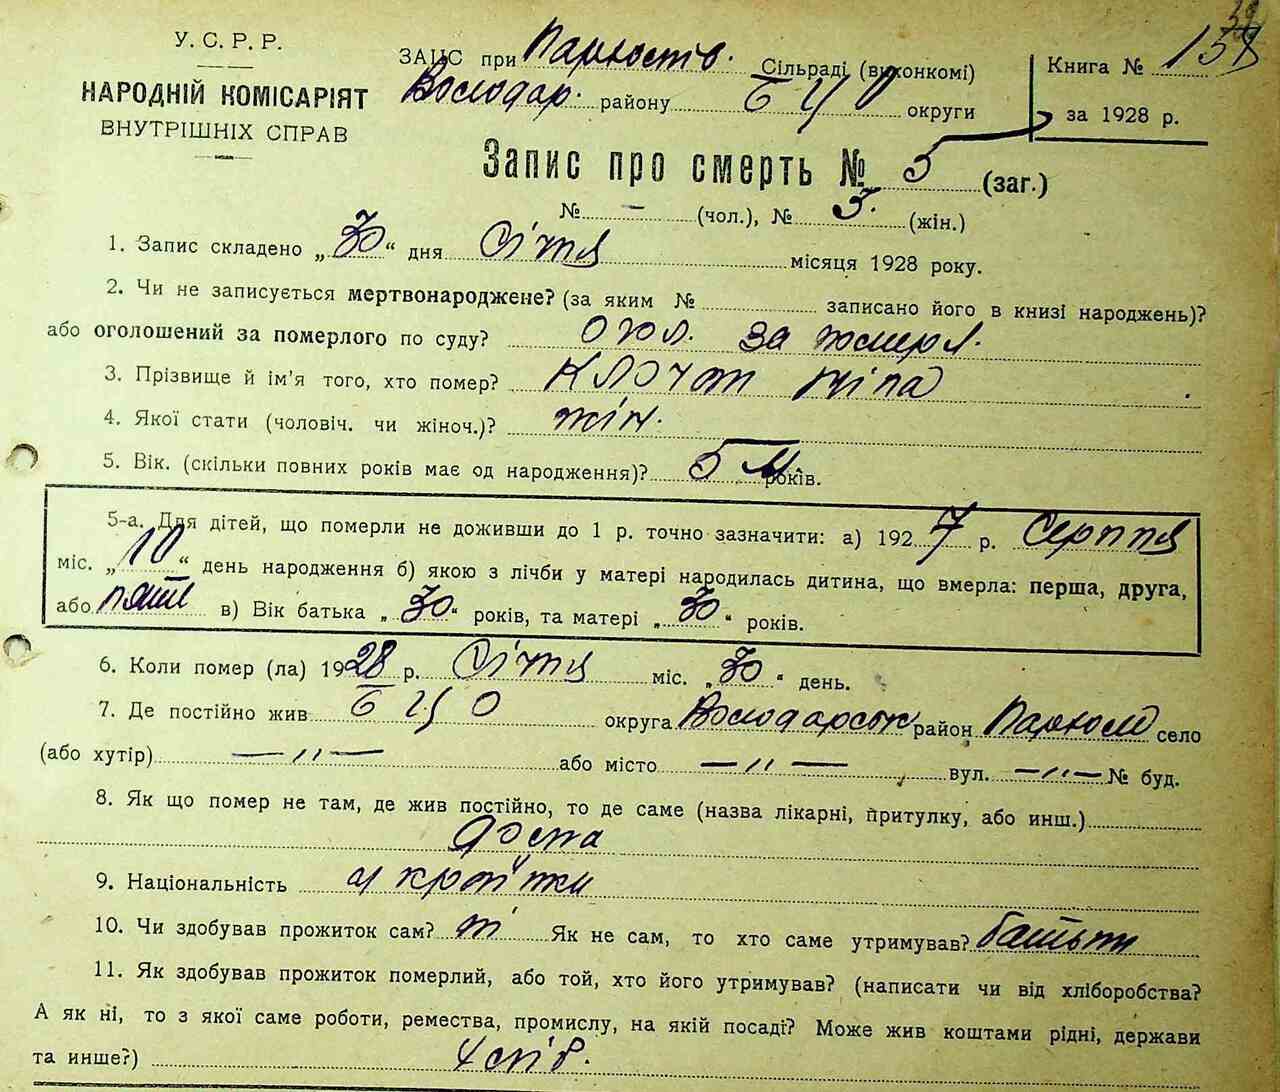 У. С. Р. Р.
НАРОДНІЙ КОМІСАРІЯТ
ВНУТРІШНІХ СПРАВ
ЗАЦС при Пархостів. Сільраді (виконкомі)
Володар. району БЦО округи
Книга № 158
39
за 1928 р.
Запис про смерть № 5 (заг.)
№ – (чол.), № 3. (жін.)
1. Запис складено „30“ дня Січня місяця 1928 року.
2. Чи не записується мертвонароджене? (за яким № записано його в книзі народжень)?
або оголошений за померлого по суду? за помер.
3. Прізвище й ім'я того, хто помер? Клочан
4. Якої стати (чоловіч. чи жіноч.)? жін.
5. Вік. (скільки повних років має од народження)? 5 м років.
5-а. Для дітей, що померли не доживши до 1 р. точно зазначити: а) 1927 р. Серпня
міс. „10“ день народження б) якою з лічби у матері народилась дитина, що вмерла: перша, друга,
або в) Вік батька „30“ років, та матері „30“ років.
6. Коли помер (ла) 1928 р. Січня міс. „30“ день.
7. Де постійно жив БЦО округа Володарськ район село
(або хутір) — „ — або місто — „ — вул. — „ — № буд.
8. Як що помер не там, де жив постійно, то де саме (назва лікарні, притулку, або инш.)
дома
9. Національність українка
10. Чи здобував прожиток сам? ні Як не сам, то хто саме утримував? батьки
11. Як здобував прожиток померлий, або той, хто його утримував? (написати чи від хліборобства?
А як ні, то з якої саме роботи, ремества, промислу, на якій посаді? Може жив коштами рідні, держави
та инше?) хліб.